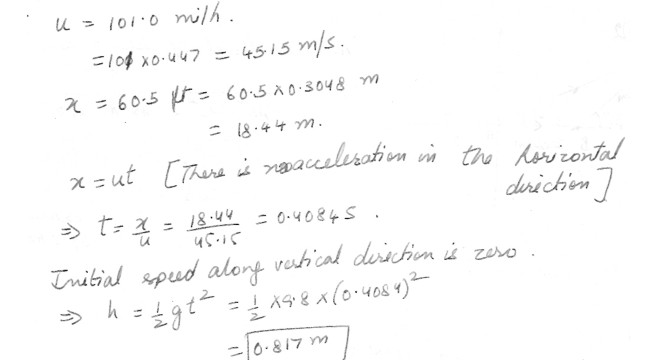 u = 101.0 mi/h.
= 101 x0.447 = 45.15 m/s.
x = 60.5 ft = 60.5 x 0.3048 m
= 18.44 m.
x = ut [There is no acceleration in the horizontal
direction]
⇒ t = x/u = 18.44/45.15 = 0.4084 s.
Initial speed along vertical direction is zero.
⇒ h = 1/2 gt² = 1/2 x 9.8 x (0.4084)²
= 0.817 m